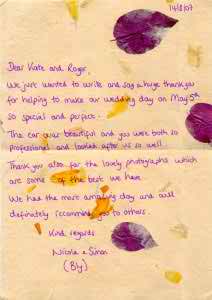 14/8/07
Dear Kate and Roger,
We just wanted to write and say a huge thank you
for helping to make our wedding day on May 5th
so special and perfect.
The car was beautiful and you were both so
professional and looked after us so well.
Thank you also for the lovely photographs which
are some of the best we have.
We had the most amazing day and will
definately recommend you to others.
Kind regards
Nicola & Simon
(Bly)